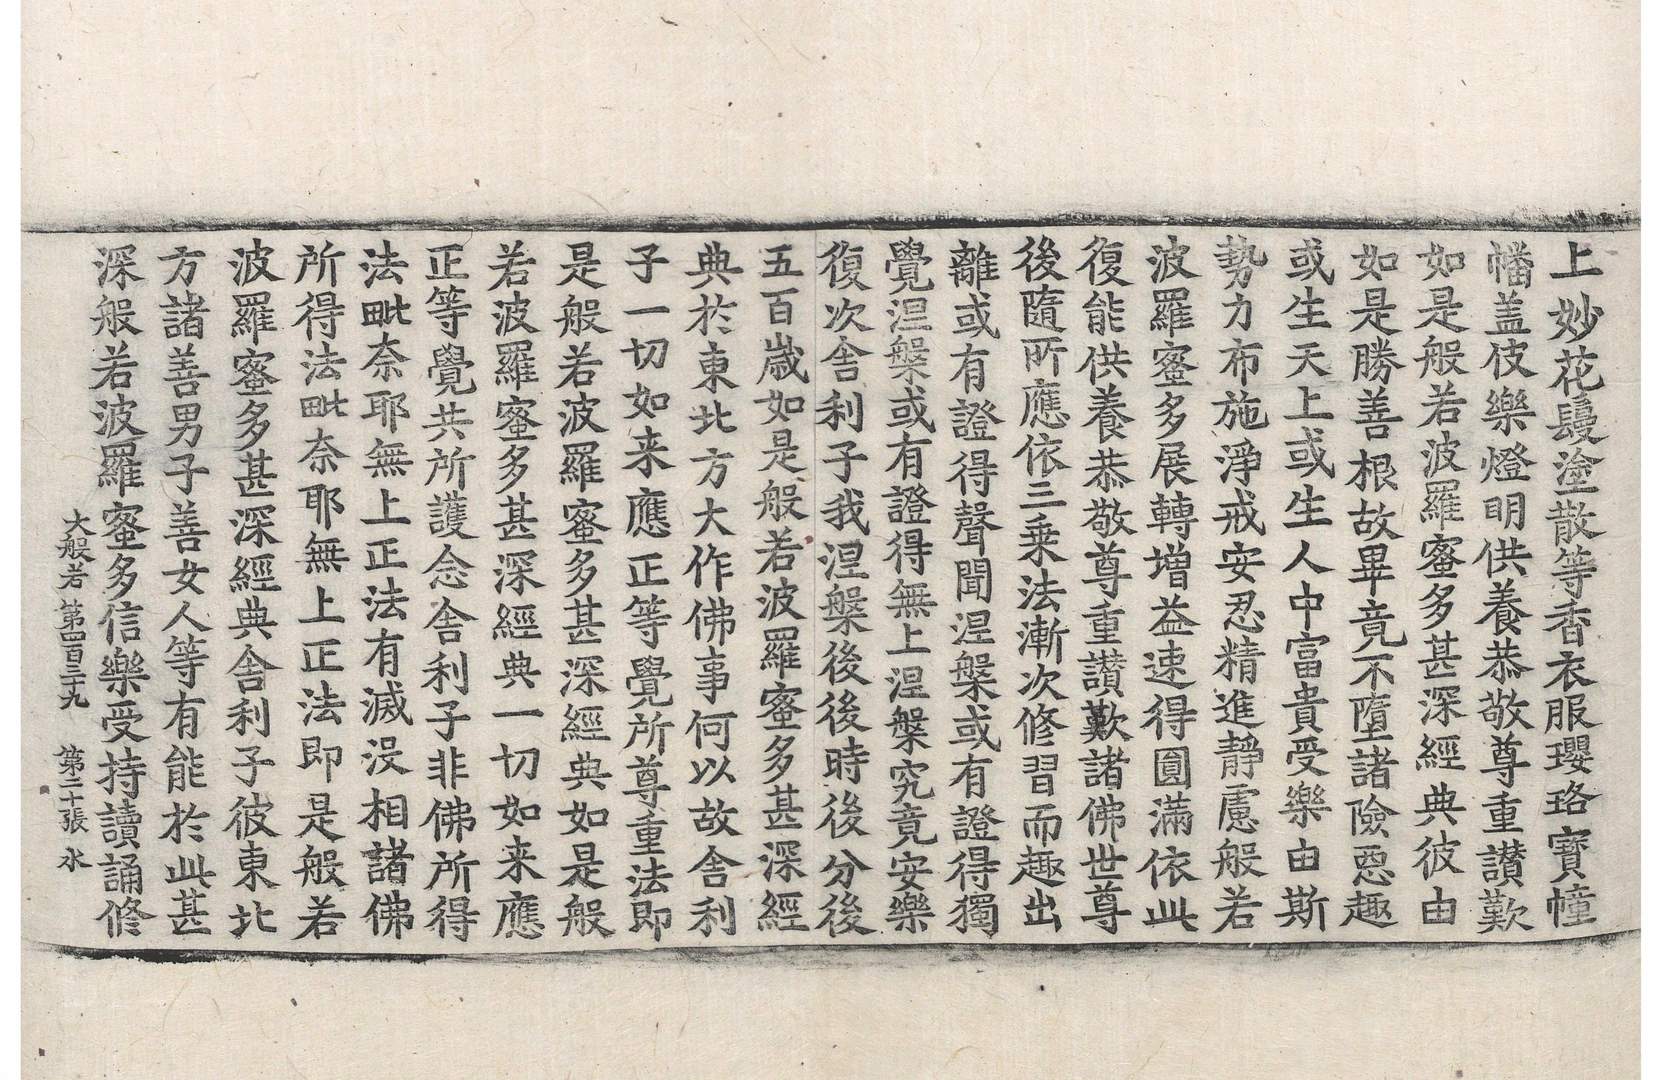 上妙花鬘塗散等香衣服瓔珞寶幢
幡盖伎樂燈明供養恭敬尊重讃歎
如是般若波羅蜜多甚深經典彼由
如是勝善根故畢竟不墮諸險惡趣
或生天上或生人中富貴受樂由斯
勢力布施淨戒安忍精進靜慮般若
波羅蜜多展轉增益速得圓滿依此
復能供養恭敬尊重讃歎諸佛世尊
後隨所應依三乗法漸次修習而趣出
離或有證得聲聞涅槃或有證得獨
覺涅槃或有證得無上涅槃究竟安樂
復次舍利子我涅槃後後時後分後
五百歲如是般若波羅蜜多甚深經
典於東北方大作佛事何以故舍利
子一切如来應正等覺所尊重法即
是般若波羅蜜多甚深經典如是般
若波羅蜜多甚深經典一切如来應
正等覺共所護念舍利子非佛所得
法毗奈耶無上正法有滅沒相諸佛
所得法毗奈耶無上正法即是般若
波羅蜜多甚深經典舍利子彼東北
方諸善男子善女人等有能於此甚
深般若波羅蜜多信樂受持讀誦修
大般若 第四百三十九 第二十張 水